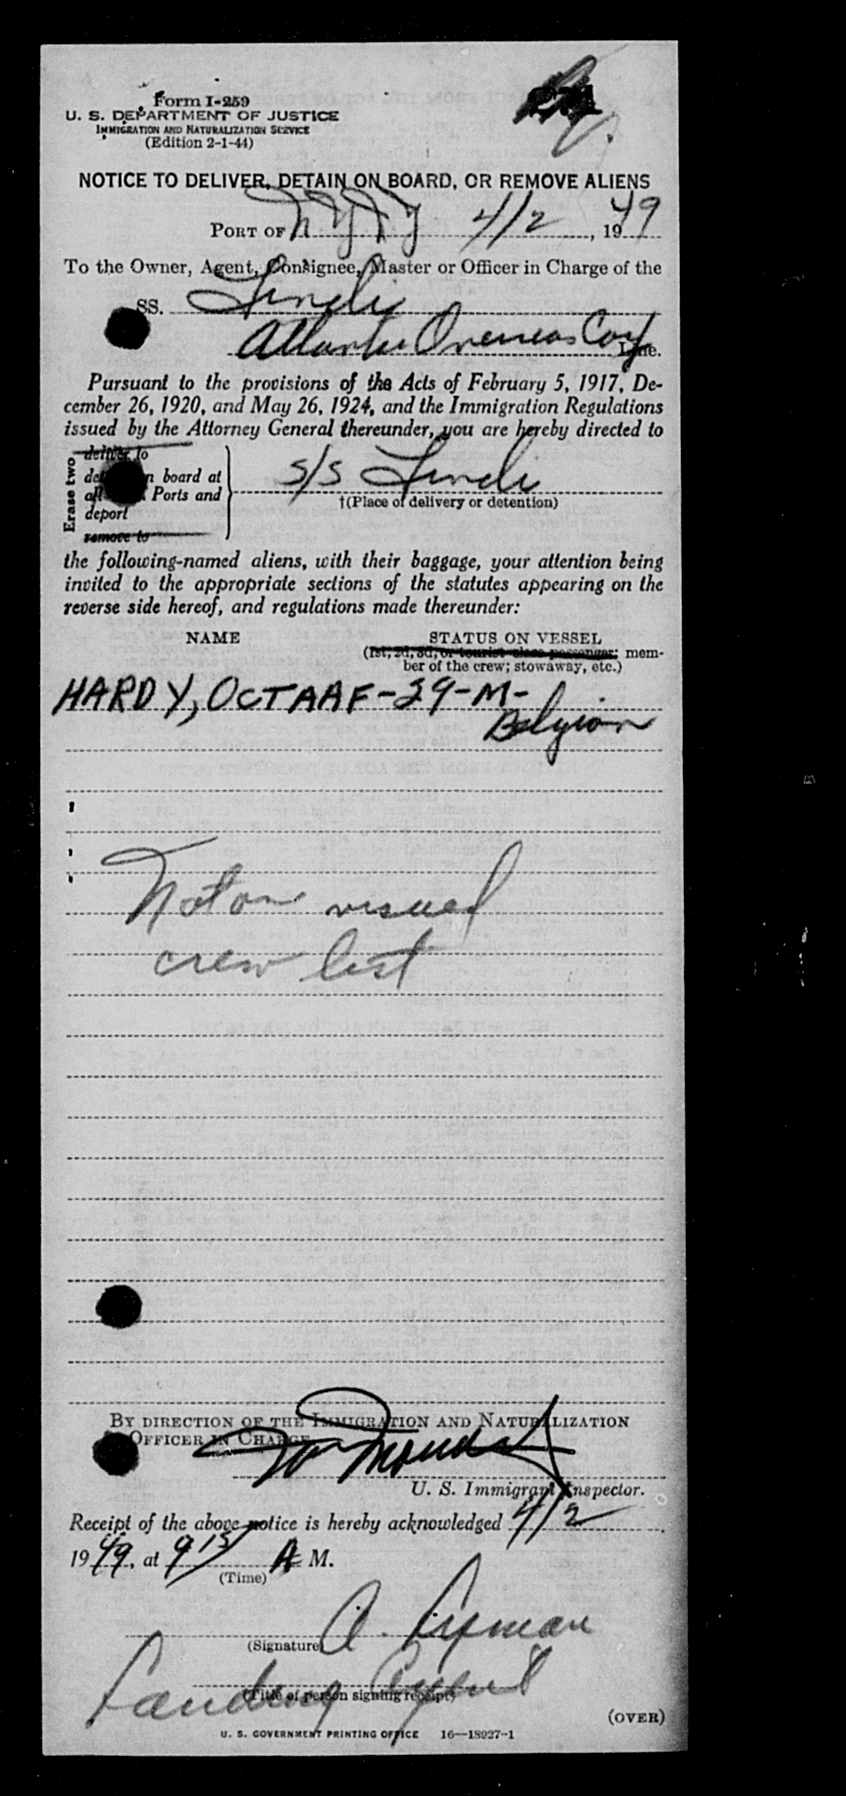 Form I-259
U. S. DEPARTMENT OF JUSTICE
IMMIGRATION AND NATURALIZATION SERVICE
(Edition 2-1-44)
NOTICE TO DELIVER, DETAIN ON BOARD, OR REMOVE ALIENS
PORT OF N Y N Y 4/2, 1949
To the Owner, Agent, Consignee, Master or Officer in Charge of the
SS. Lindi
Atlantic Overseas Coy Line.
Pursuant to the provisions of the Acts of February 5, 1917, De-
cember 26, 1920, and May 26, 1924, and the Immigration Regulations
issued by the Attorney General thereunder, you are hereby directed to
Erase two
deliver to
n board at
Ports and
deport
remove to
S/S Lindi
†(Place of delivery or detention)
the following-named aliens, with their baggage, your attention being
invited to the appropriate sections of the statutes appearing on the
reverse side hereof, and regulations made thereunder:
NAME STATUS ON VESSEL
(1st, 2d, 3d, or tourist class passenger; mem-
ber of the crew; stowaway, etc.)
HARDY, OCTAAF-29-M-
Belgian
Not on visaed
crew list
BY DIRECTION OF THE IMMIGRATION AND NATURALIZATION
OFFICER IN CHARGE
U. S. Immigrant Inspector.
Receipt of the above notice is hereby acknowledged 4/2
1949, at 9 15 A M.
(Time)
A. Lipman
(Signature)
Landing Agent
(Title of person signing receipt)
(OVER)
U. S. GOVERNMENT PRINTING OFFICE 16—18927-1